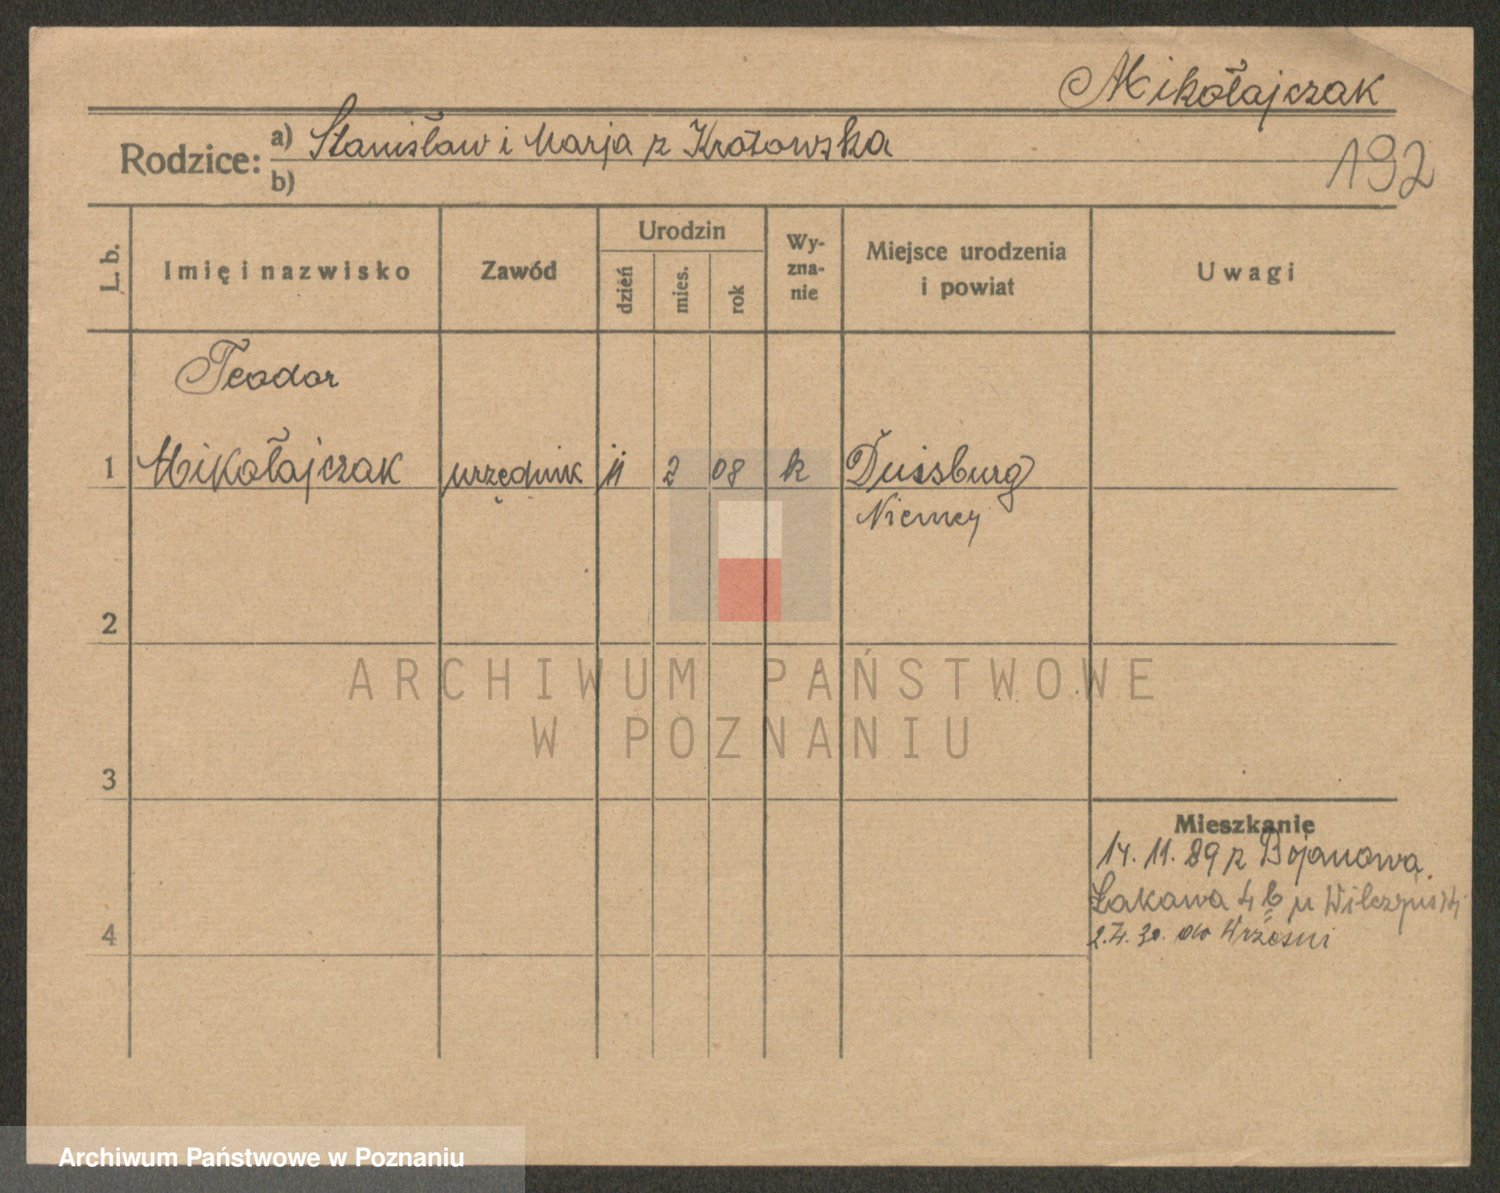 Mikołajczak
Rodzice:
a) Stanisław i Marja z Krotowska
b)
192
L. b.
Imię i nazwisko
Zawód
Urodzin
dzień
mies.
rok
Wy-
zna-
nie
Miejsce urodzenia
i powiat
Uwagi
Teodor
1 Mikołajczak urzędnik 11 2 08 k Duissburg
Niemcy
2
3
4
Mieszkanie
14. 11. 29 z Bojanowa.
Łakawa 4 b u
do Wrześni
ARCHIWUM PAŃSTWOWE
W POZNANIU
Archiwum Państwowe w Poznaniu